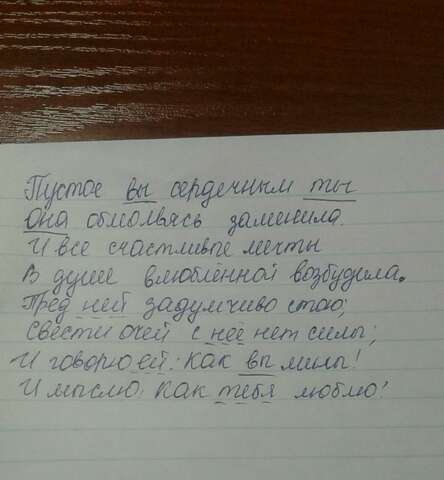 Пустое вы сердечным ты
Она обмолвясь заменила.
И все счастливые мечты
В душе влюблённой возбудила.
Пред ней задумчиво стою;
Свести очей с неё нет силы;
И говорю ей: как вы милы!
И мыслю: как тебя люблю!